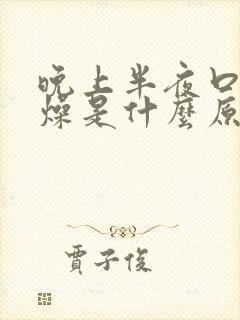 晚上半夜口
燥是什麼原
賈子俊